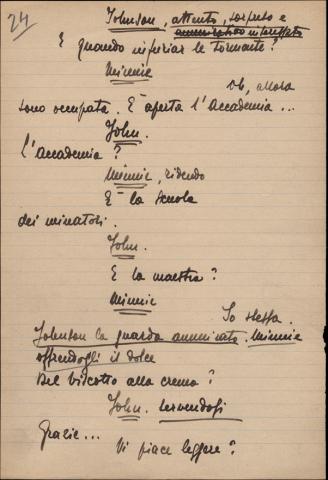 24
Johnson, attento, sorpreso e
ammirativo interessato
E quando infuriar le tormente?
Minnie
Oh, allora
sono occupata. È aperta l'Accademia ...
John.
L'accademia?
Minnie, ridendo
È la scuola
dei minatori.
John.
E la maestra?
Minnie
Io stessa.
Johnson la guarda ammirato. Minnie
offrendogli il dolce
Del biscotto alla crema?
John. servendosi
Grazie...
Vi piace leggere?